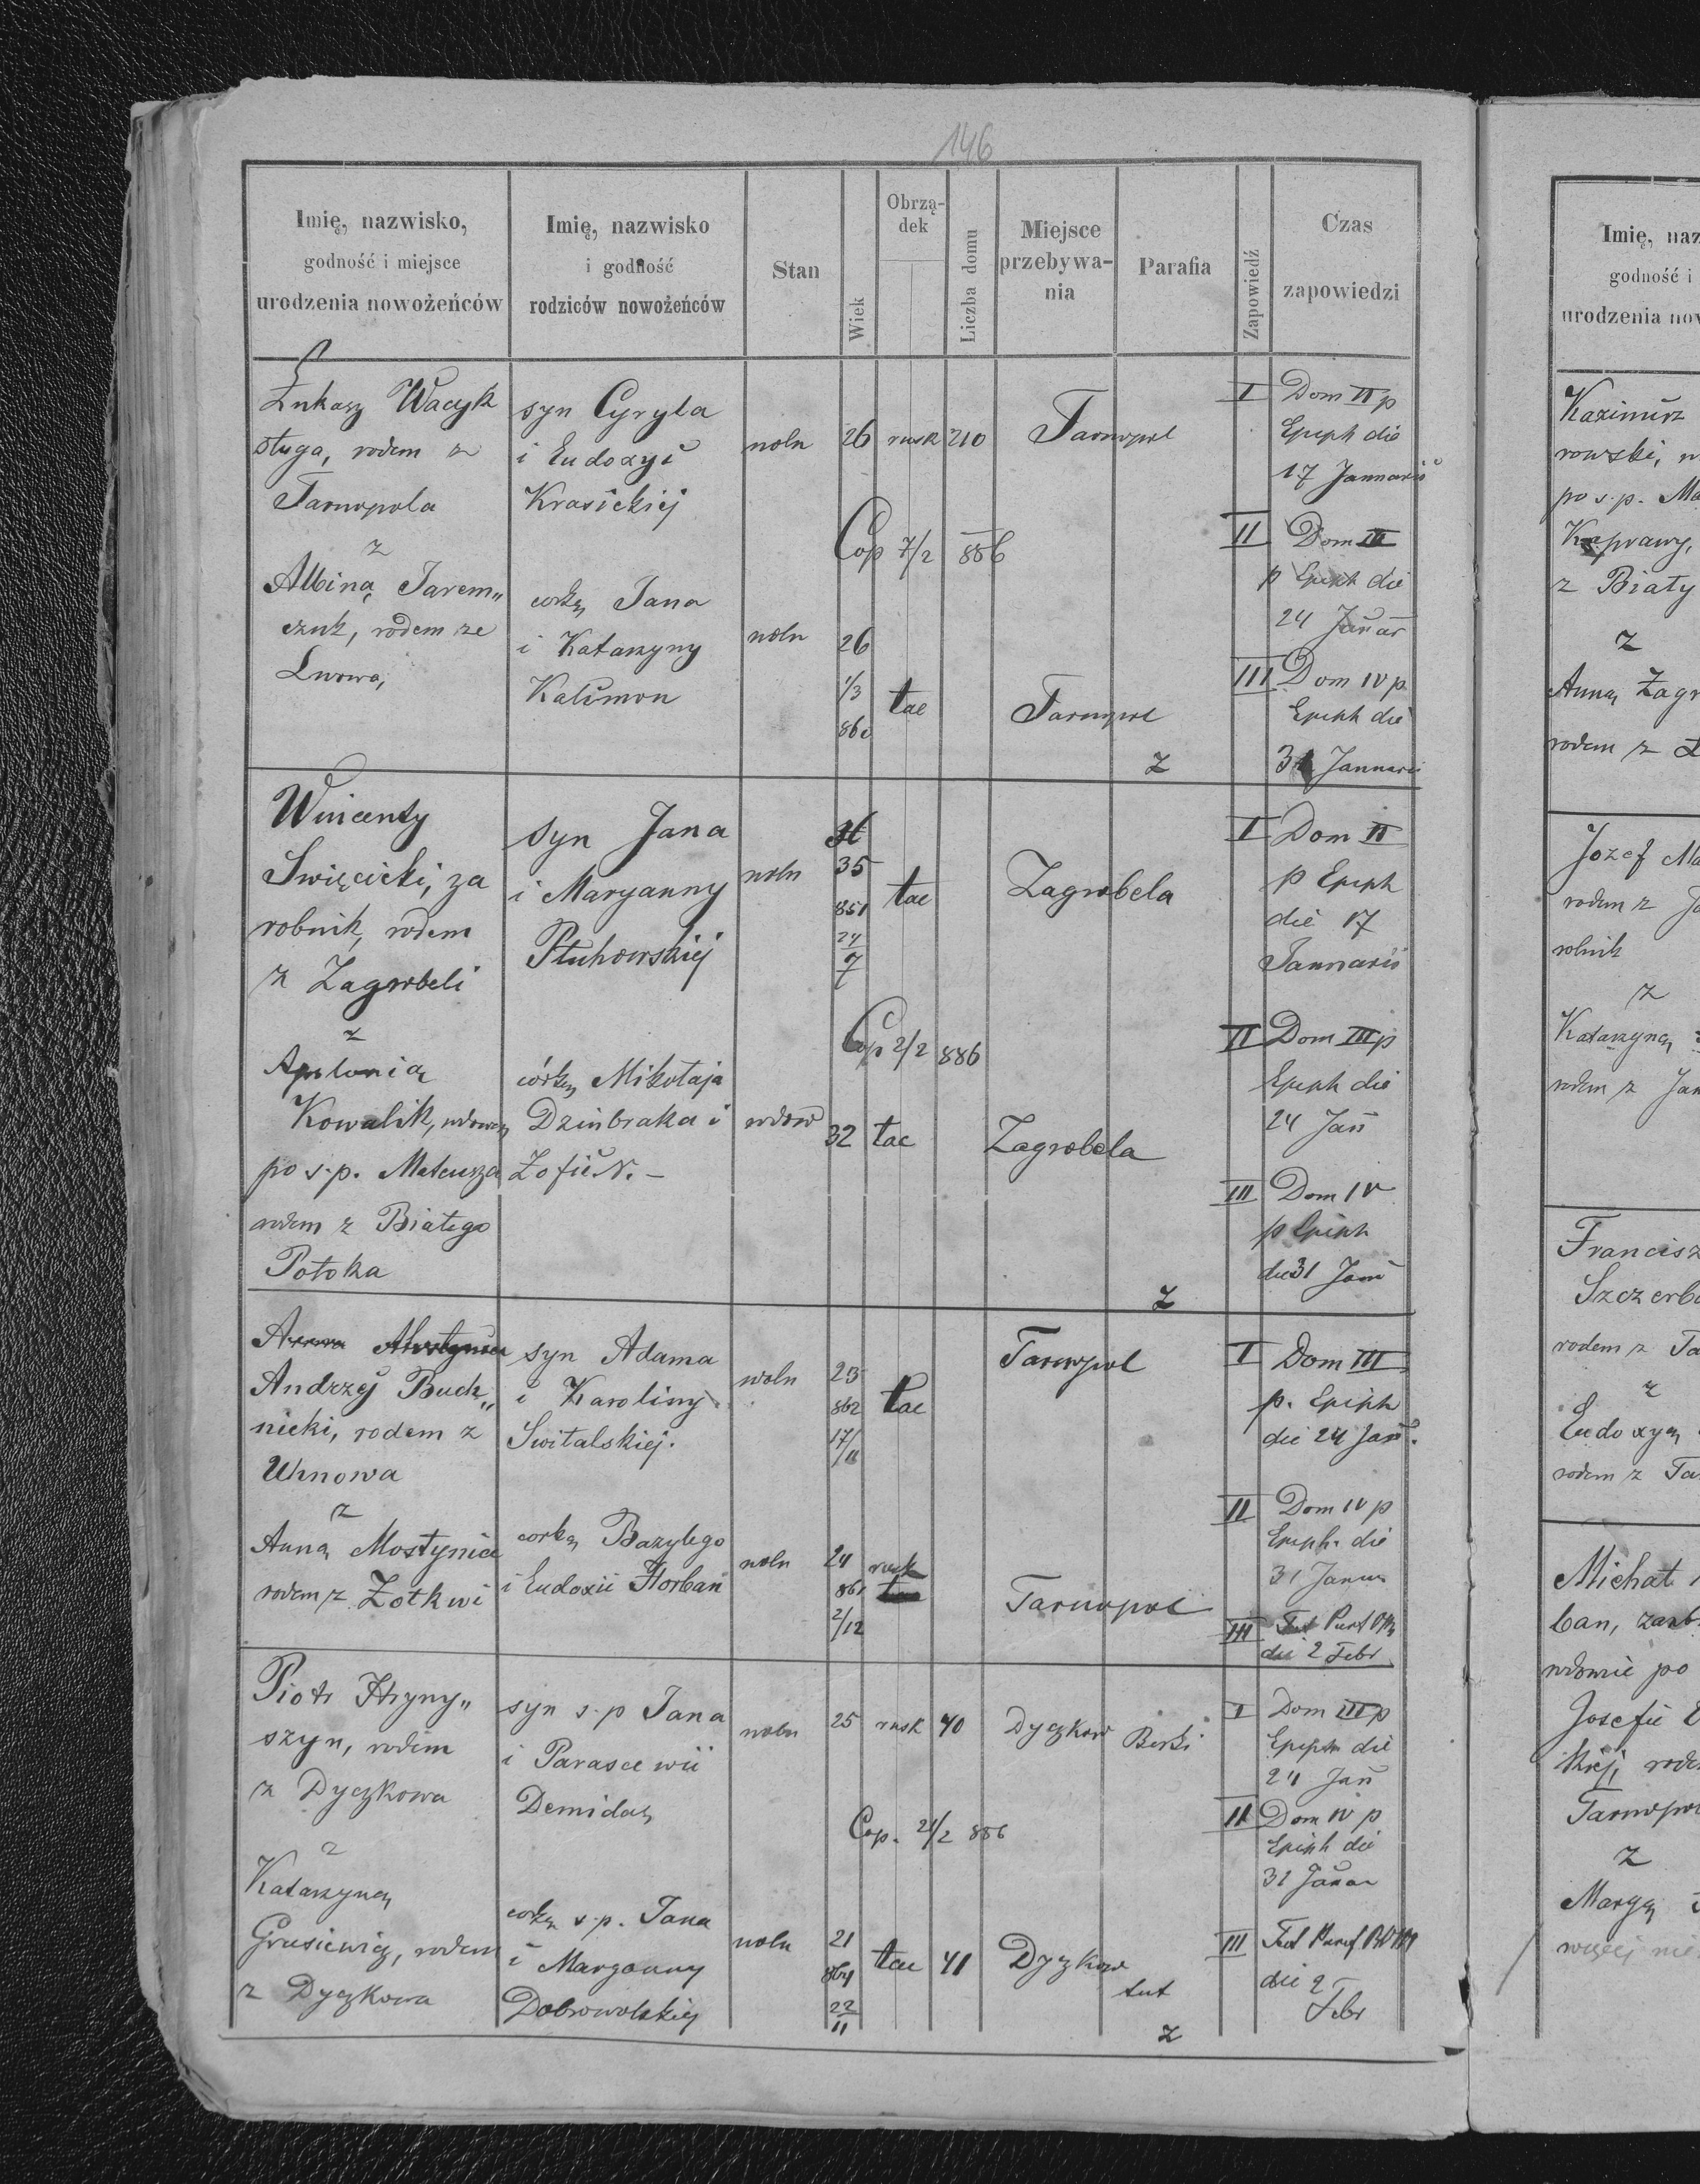 146
Imię, nazwisko,
godność i miejsce
urodzenia nowożeńców
Imię, nazwisko
i godność
rodziców nowożeńców
Stan
Wiek
Obrzą-
dek
Liczba domu
Miejsce
przebywa-
nia
Parafia
Zapowiedź
Czas
zapowiedzi
Łukasz Wacyk
sługa, rodem z
Tarnopola
z
Albiną Jarem„
czuk, rodem ze
Lwowa,
syn Cyryla
i Eudoxyi
Krasickiej
corką Jana
i Katarzyny
Kalimon
woln
woln
26
26
1/3
860
rusk
łac
210
Cop 7/2 886
Tarnopol
Tarnopol
z
I Dom II p
Epiph die
17 Januarii
II Dom III
p Epiph die
24 Januar
III Dom IV p
Epiph die
31 Januarii
Wincenty
Swięcicki, za
robnik, rodem
z Zagrobeli
z
Apolonią
Kowalik, wdową
po s.p. Mateusza
rodem z Białego
Potoka
syn Jana
i Maryanny
Płuhowskiej
córką Mikołaja
Dzinbraka i
Zofii N. –
woln
wdow
35
851
24
7
32
łac
łac
Cop 2/2 886
Zagrobela
Zagrobela
z
I Dom II
p Epiph
die 17
Januarii
II Dom III p
Epiph die
24 Jan
III Dom IV
p Epiph
die 31 Jan
Anna Mostynica
Andrzej Buch„
nicki, rodem z
Uhnowa
z
Anną Mostynica
rodem z Żołkwi
syn Adama
i Karoliny
Switalskiej.
corką Bazylego
i Eudoxii Horban
woln
woln
23
862
17/11
24
861
2/12
łac
rusk
Tarnopol
Tarnopol
I Dom III
p. Epiph
die 24 Jan.
II Dom IV p
Epiph. die
31 Januar
III Fest Purif
die 2 Febr
Piotr Hryny„
szyn, rodem
z Dyczkowa
z
Katarzyną
Grusiewicz, rodem
z Dyczkowa
syn s.p Jana
i Parascewii
Demidas
corką s.p. Jana
i Maryanny
Dobrowolskiej
woln
woln
25
21
864
22
11
rusk
łac
40
41
Cop. 21/2 886
Dyczkow
Dyczkow
Borki
tut
z
I Dom III p
Epiph die
24 Jan
II Dom IV p
Epiph die
31 Januar
III Fest Purif BVM
die 2
Febr
Imię, naz
godność i
urodzenia now
Kazimirz
rowski, w
po s.p. Ma
z Biały
z
Anną Zagr
rodem z
Jozef Ma
rodem z Ja
rolnik
z
Katarzyną
rodem z Jan
Francisz
Szczerb
rodem z Ta
z
Eudoxyą
rodem z Ta
Michał
ban, zarob
wdowie po
Josefie
kiej, rode
Tarnopol
z
Maryą
więcej nie